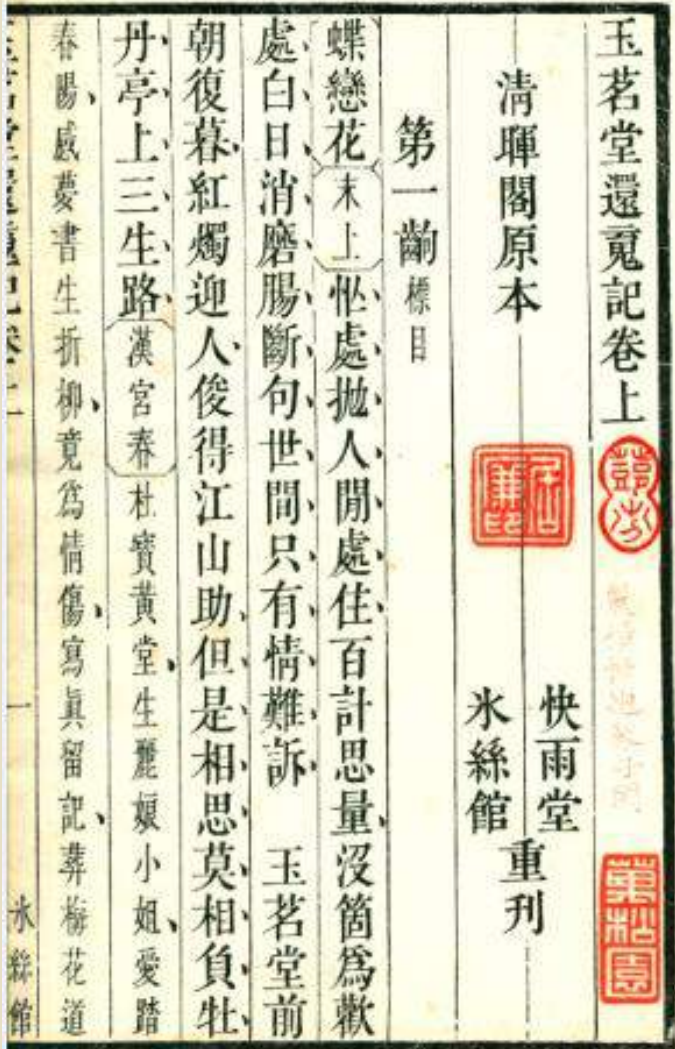 玉茗堂還䰟記卷上
清暉閣原本
快雨堂
氷絲館
重刊
第一齣 標目
蝶戀花 末上 恾處拋人閒處住百計思量沒箇爲歡
處白日消磨腸斷句世間只有情難訴　玉茗堂前
朝復暮紅燭迎人俊得江山助但是相思莫相負牡
丹亭上三生路 漢宮春 杜寶黃堂生麗娘小姐愛踏
春陽感夢書生折柳竟爲情傷寫眞留記葬梅花道
一
氷絲館